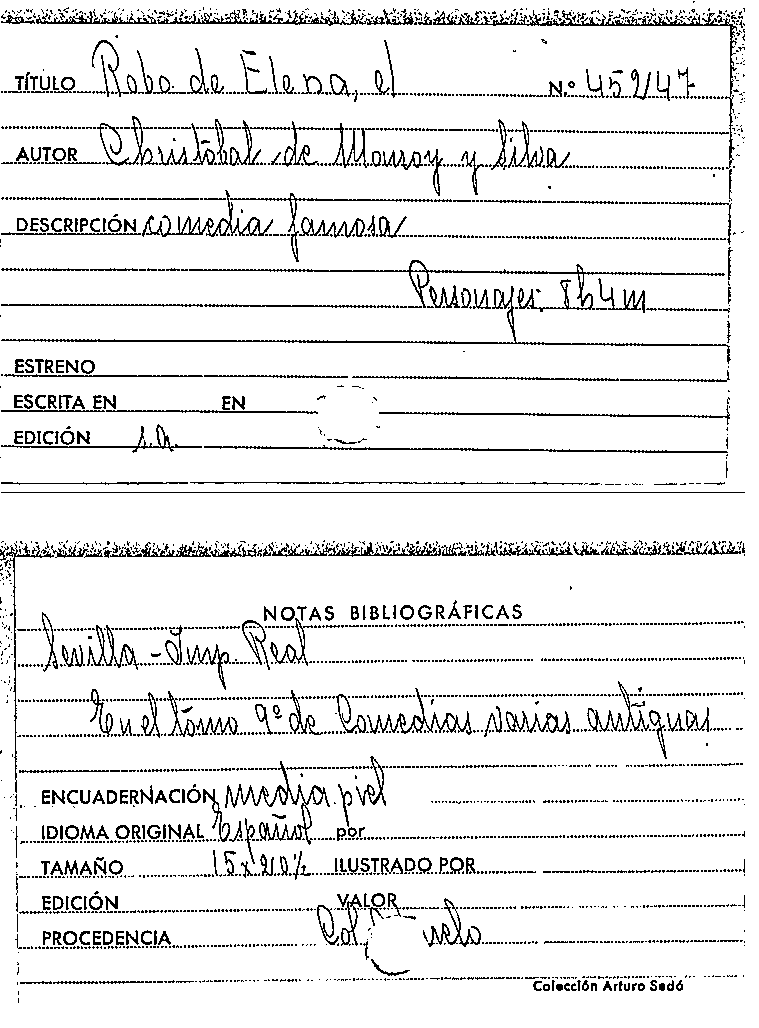 TÍTULO Robo de Elena, el N.º 45247
AUTOR Christóbal de Monroy y Silva
DESCRIPCIÓN comedia famosa
Personajes: 8h4m
ESTRENO
ESCRITA EN EN
EDICIÓN s.a.
NOTAS BIBLIOGRÁFICAS
Sevilla - Imp. Real
En el tomo 9º de Comedias varias antiguas
ENCUADERNACIÓN media piel
IDIOMA ORIGINAL Español por
TAMAÑO 15x20½ ILUSTRADO POR
EDICIÓN VALOR
PROCEDENCIA Col.
Colección Arturo Sedó